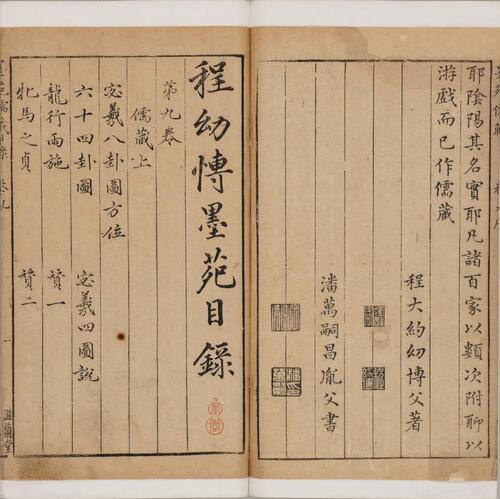 耶陰陽其名實耶凡諸百家以類次附聊以
游戲而已作儒藏
程大約幼博父著
潘萬嗣昌胤父書
程幼博墨苑目錄
第九卷
儒藏上
宓羲八卦圖方位
六十四卦圖 宓羲四圖說
龍行雨施 贊一
牝馬之貞 贊二
卷九
一
滋蘭堂